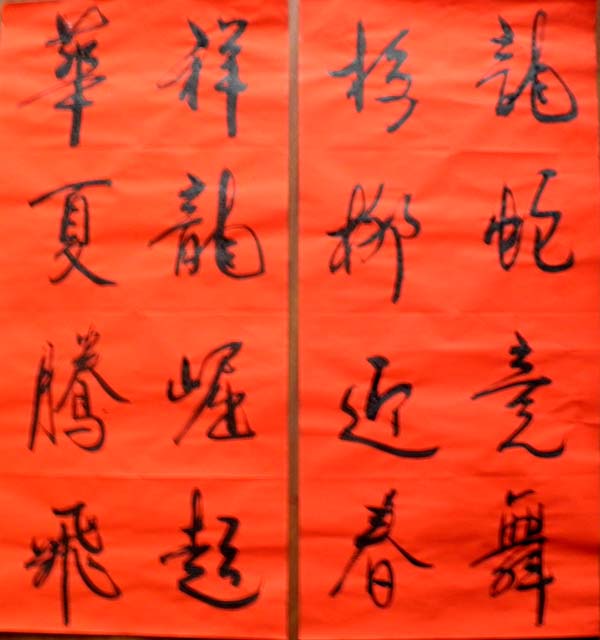 龍蛇竞舞
梅柳迎春
祥龍崛起
華夏騰飛